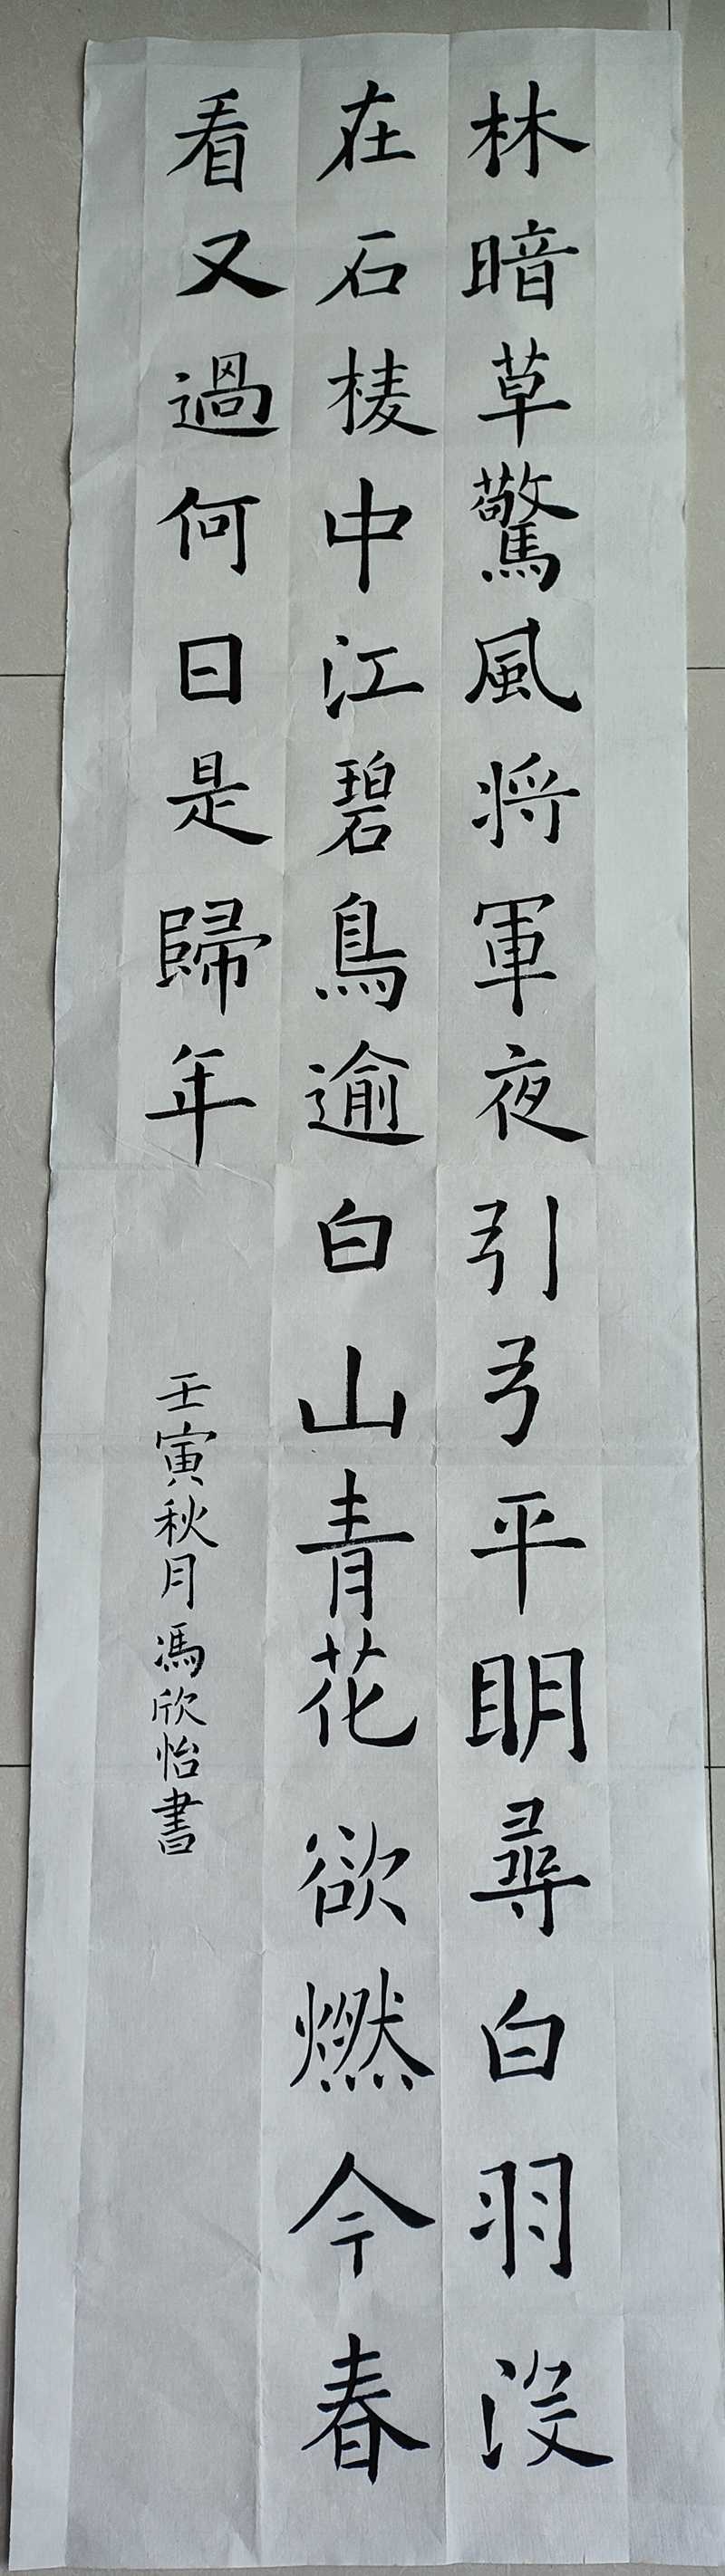 林暗草驚風将軍夜引弓平明尋白羽没
在石棱中江碧鳥逾白山青花欲燃今春
看又過何日是歸年
壬寅秋月馮欣怡書